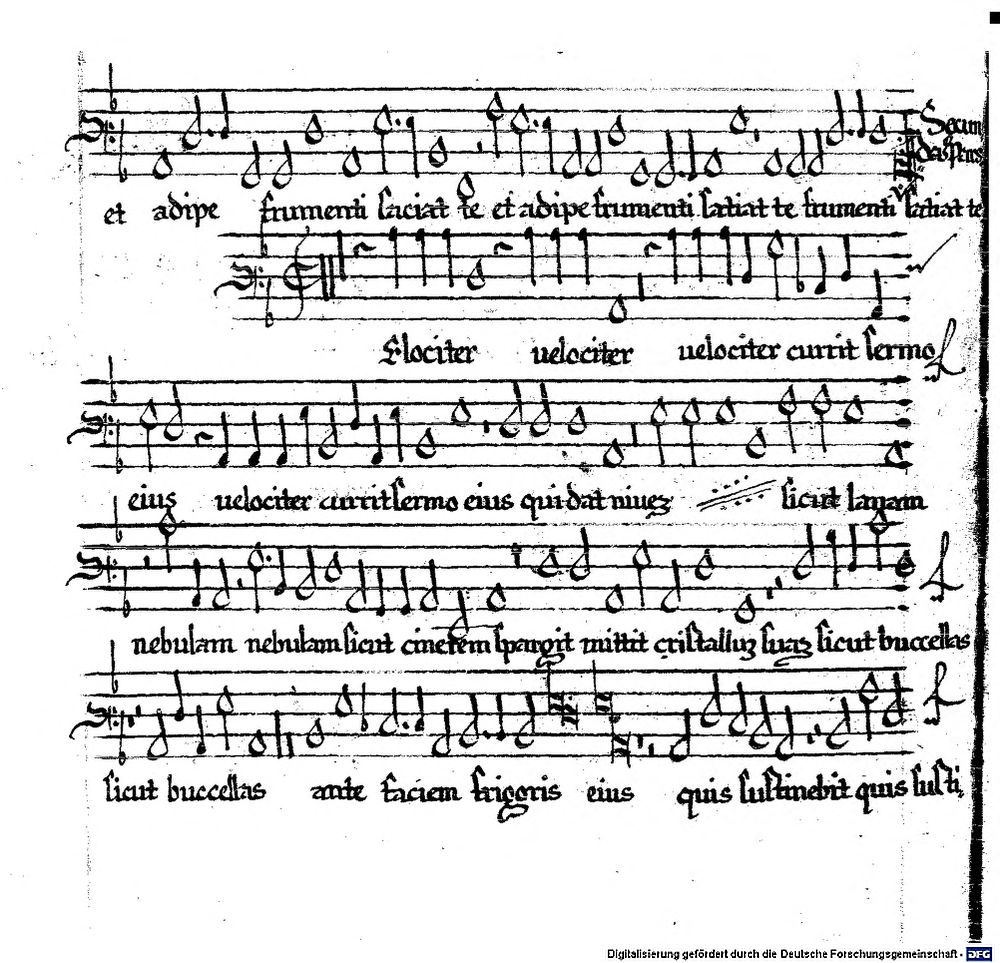 Secun
da pars
et adipe frumenti saciat te et adipe frumenti satiat te frumenti satiat te
Elociter uelociter uelociter currit sermo
eius uelociter currit sermo eius qui dat niuez sicut lanam
nebulam nebulam sicut cinerem spargit mittit cristalluz suaz sicut buccellas
sicut buccellas ante faciem frigoris eius quis sustinebit quis susti,
Digitalisierung gefördert durch die Deutsche Forschungsgemeinschaft - DFG